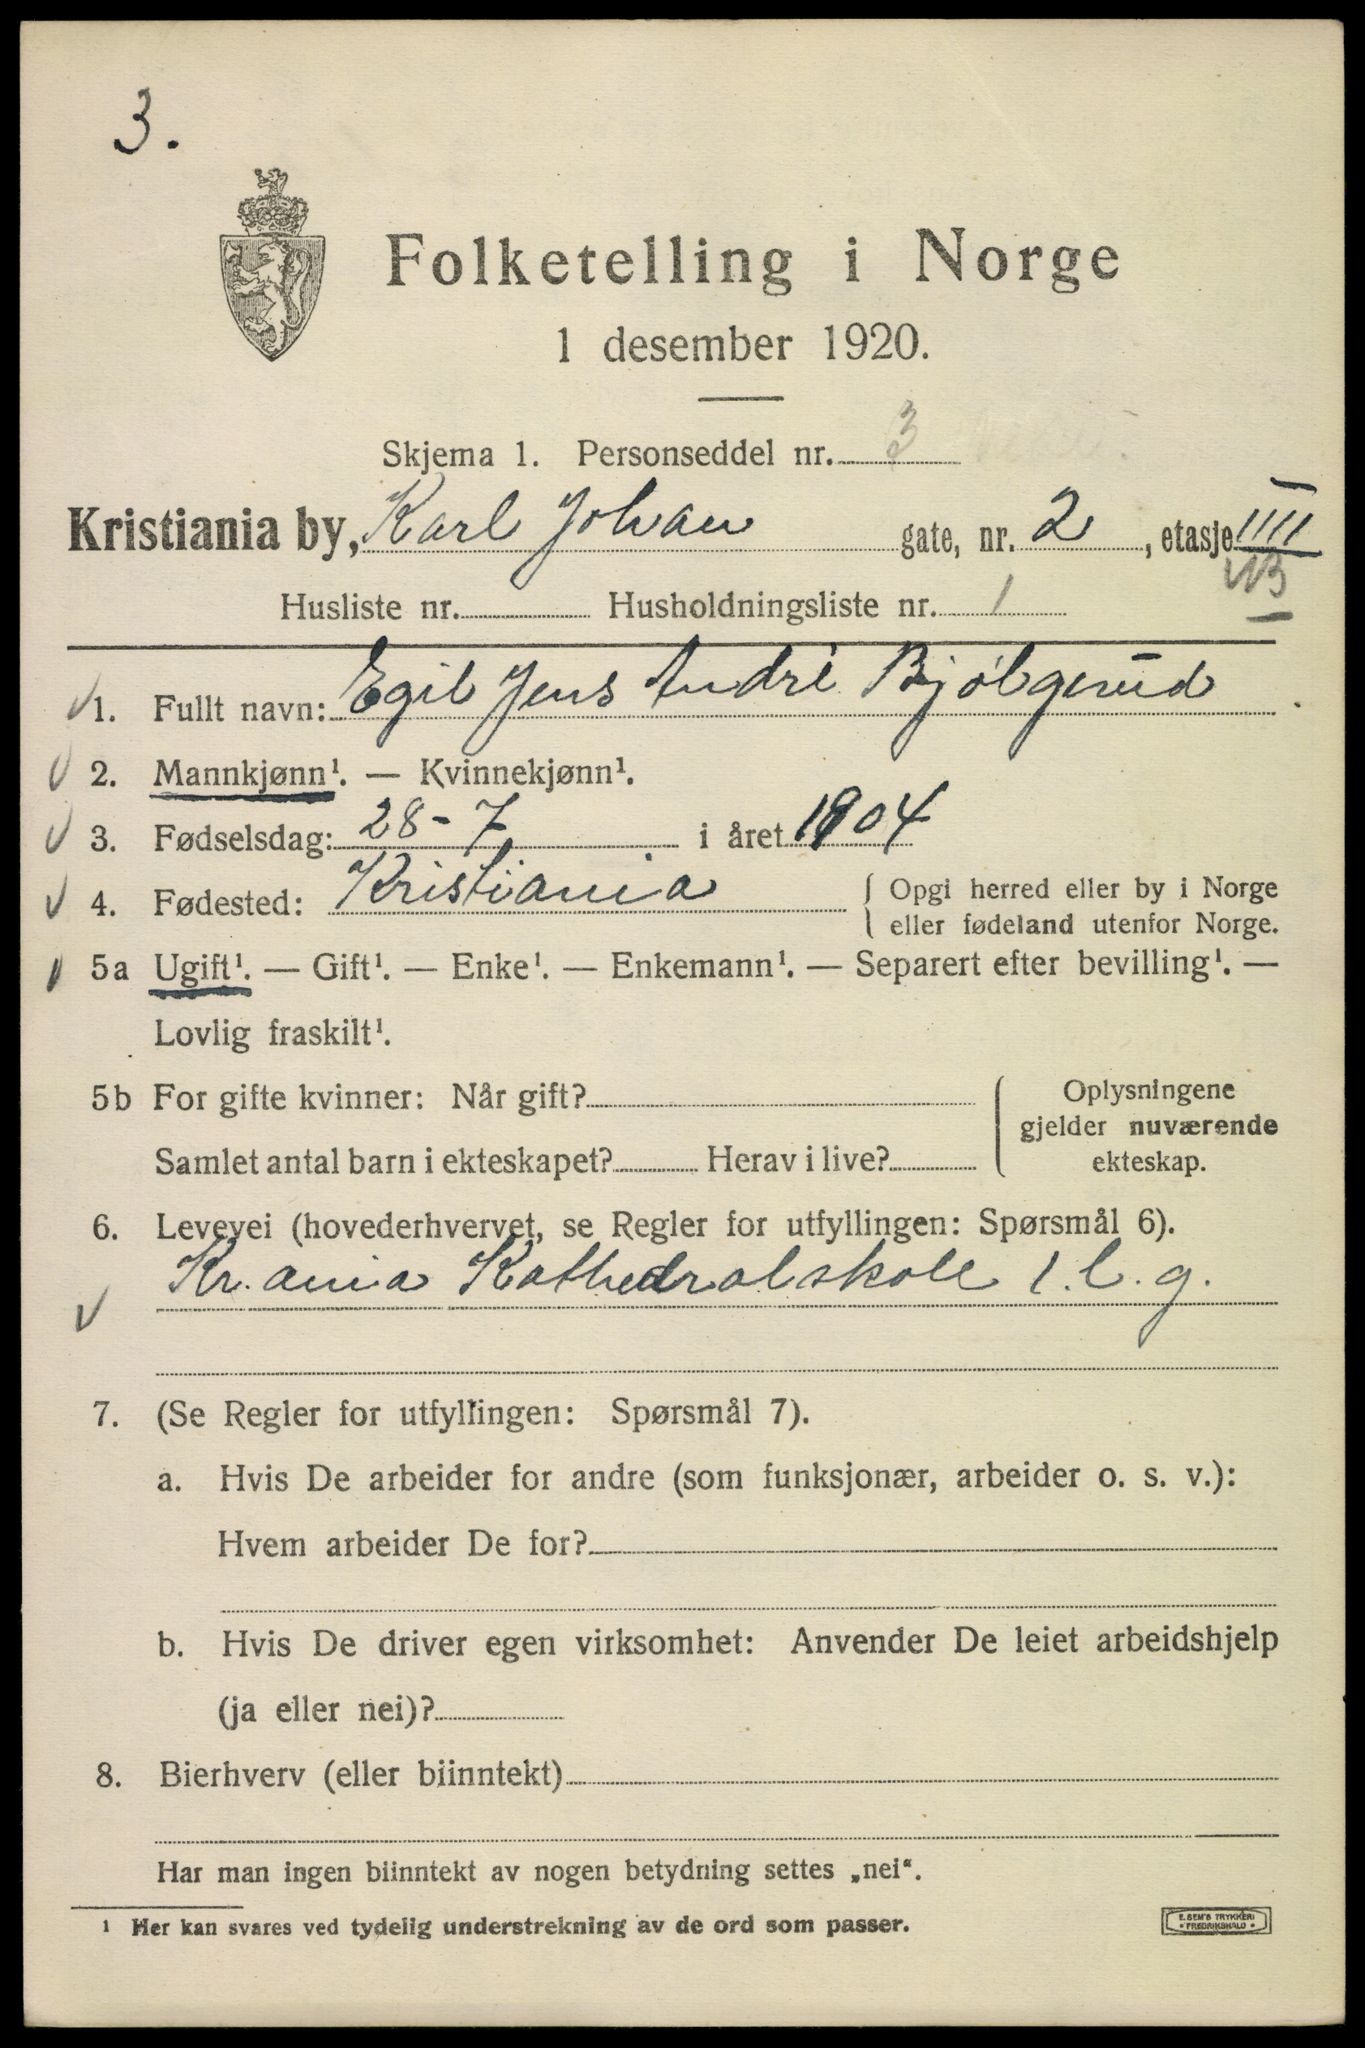 3.
Folketelling i Norge
1 desember 1920.
Skjema 1. Personseddel nr. 3
Kristiania by, Karl Johan gate, nr. 2, etasje IIII
Husliste nr. Husholdningsliste nr. 1
1. Fullt navn: Egil Jens André Bjölgerud
2. Mannkjønn¹. — Kvinnekjønn¹.
3. Fødselsdag: 28-7 i året 1904
4. Fødested: Kristiania { Opgi herred eller by i Norge
eller fødeland utenfor Norge.
5a Ugift¹. — Gift¹. — Enke¹. — Enkemann¹. — Separert efter bevilling¹. —
Lovlig fraskilt¹.
5b For gifte kvinner: Når gift?
Samlet antal barn i ekteskapet? Herav i live?
Oplysningene
gjelder nuværende
ekteskap.
6. Levevei (hovederhvervet, se Regler for utfyllingen: Spørsmål 6).
Kr.ania Kathedralskole 1. l. g.
7. (Se Regler for utfyllingen: Spørsmål 7).
a. Hvis De arbeider for andre (som funksjonær, arbeider o. s. v.):
Hvem arbeider De for?
b. Hvis De driver egen virksomhet: Anvender De leiet arbeidshjelp
(ja eller nei)?
8. Bierhverv (eller biinntekt)
Har man ingen biinntekt av nogen betydning settes „nei“.
¹ Her kan svares ved tydelig understrekning av de ord som passer.
E. SEM'S TRYKKERI
• FREDRIKSHALD •